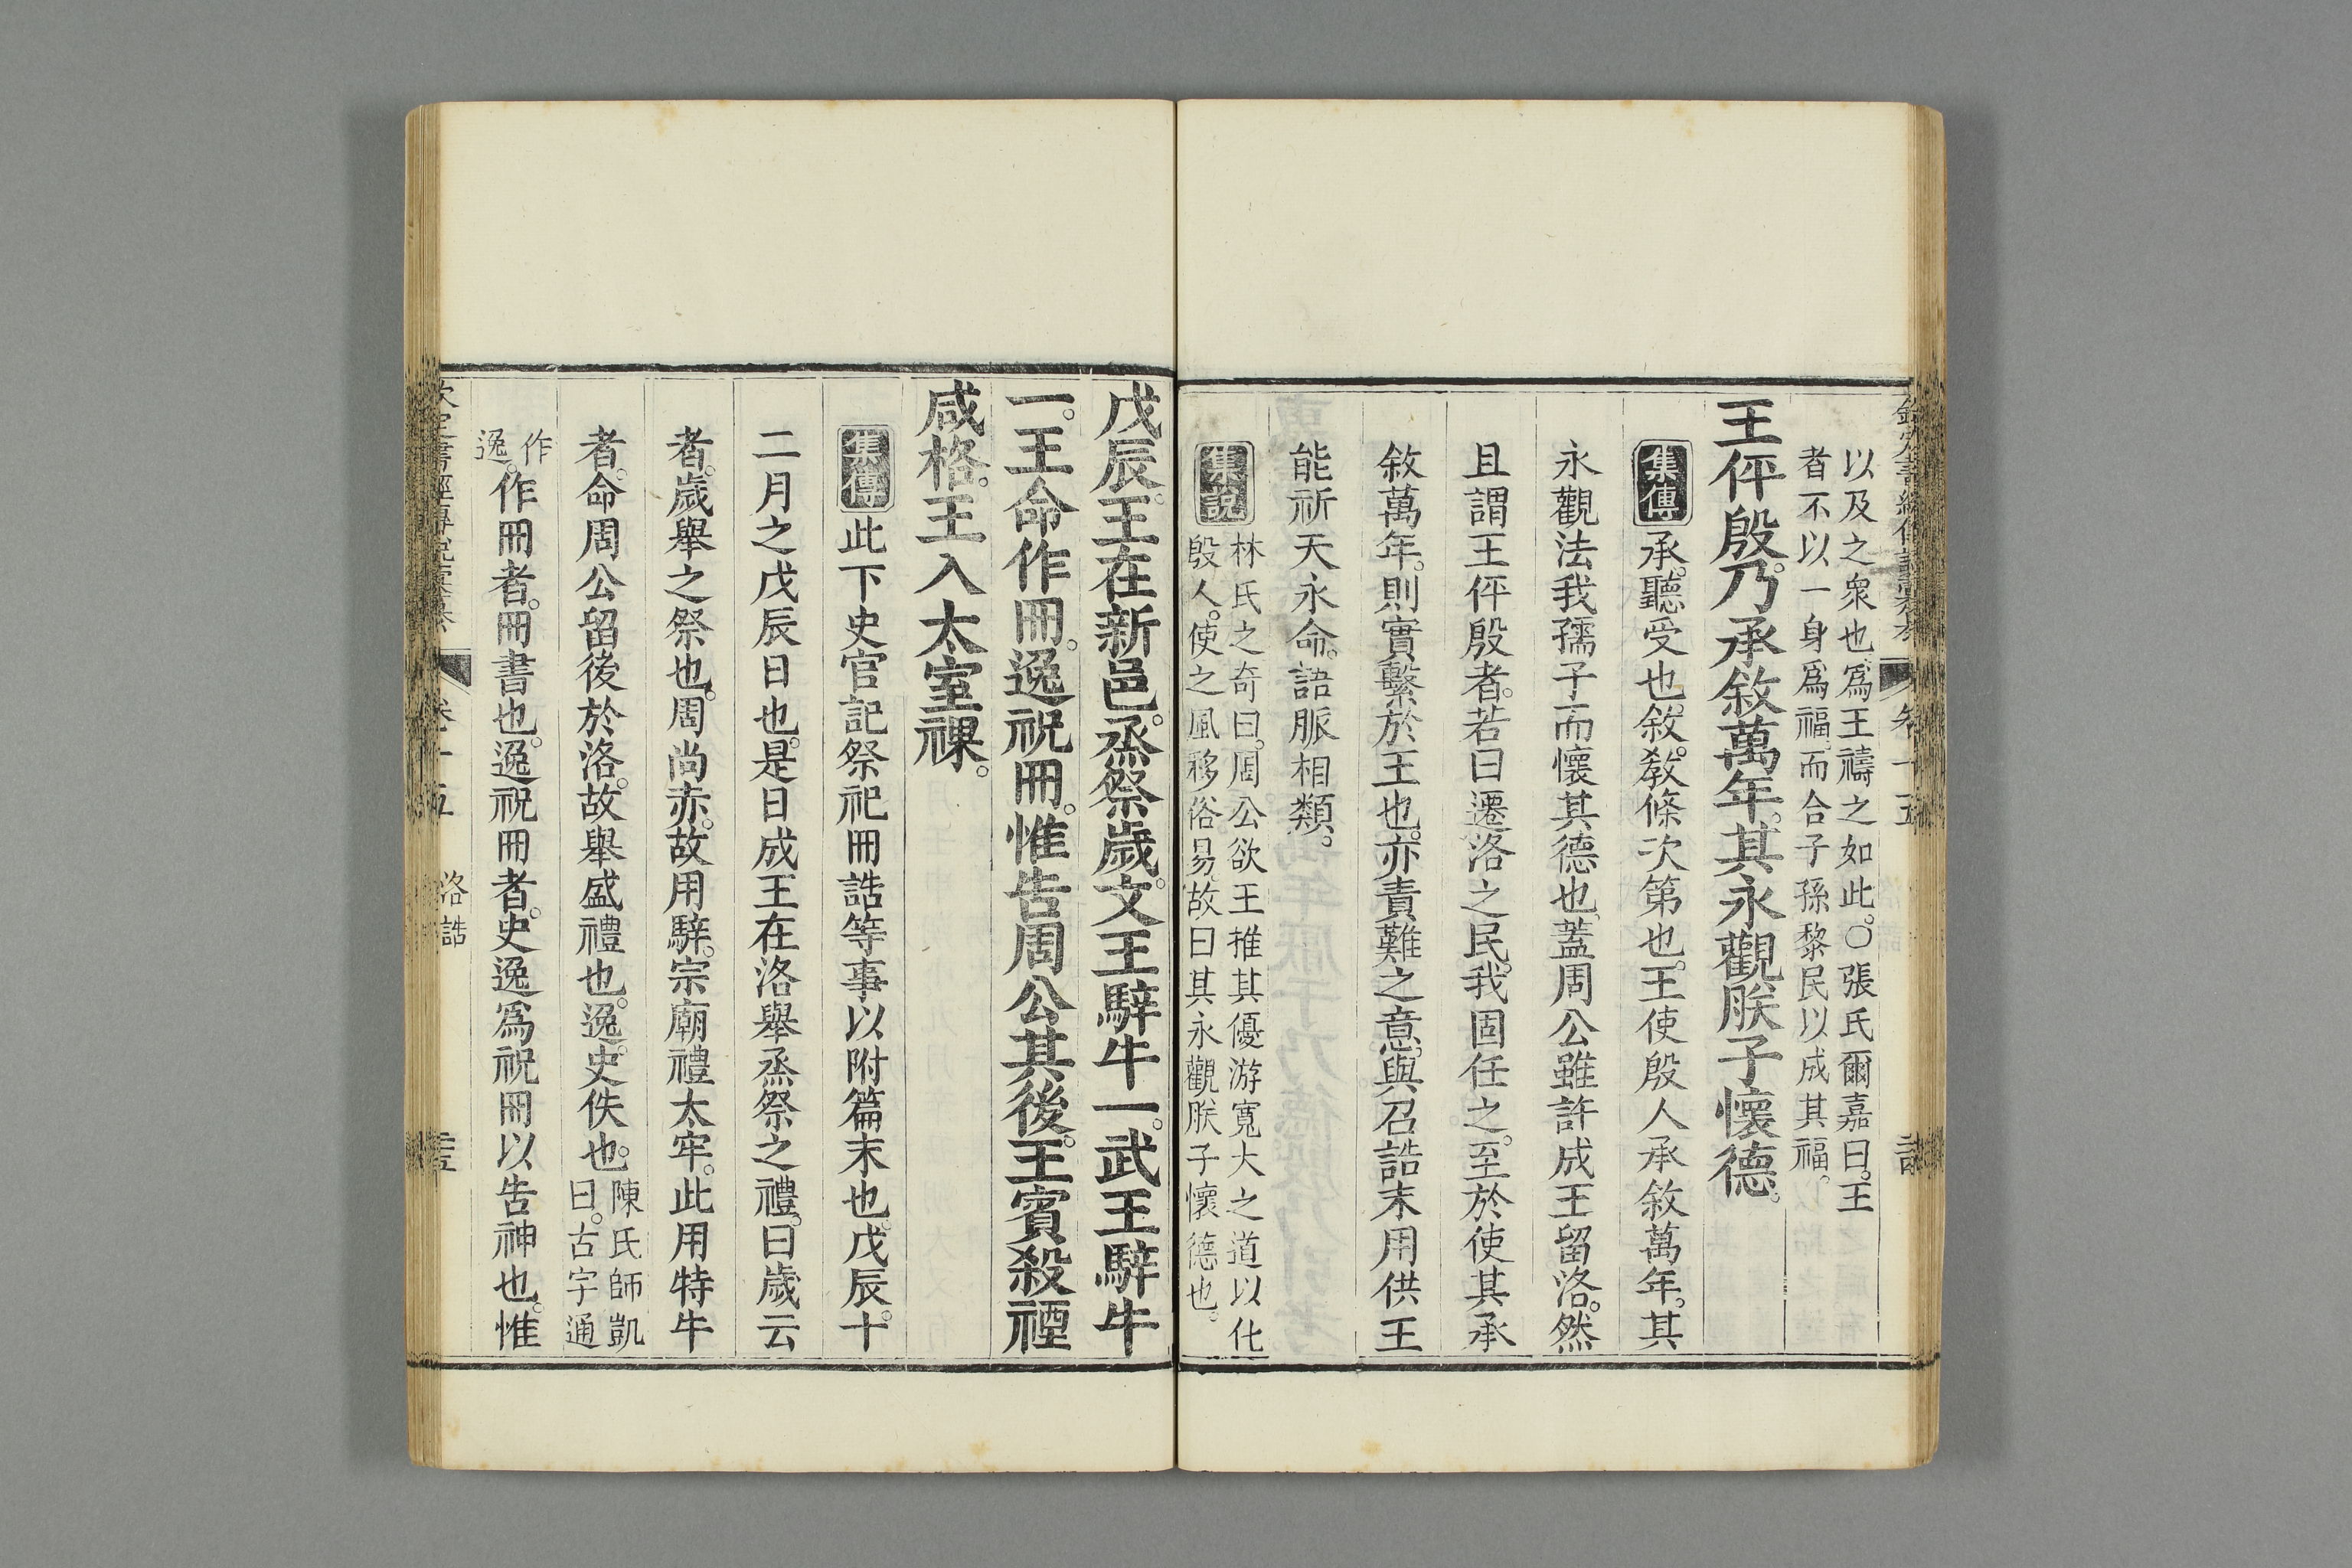 以及之衆也。爲王禱之如此。○張氏爾嘉曰。王
者不以一身爲福。而合子孫黎民以成其福。
王伻殷。乃承敘萬年。其永觀朕子懷德。
集傳 承。聽受也。敘。敎條次第也。王使殷人承敘萬年。其
永觀法我孺子而懷其德也。蓋周公雖許成王留洛。然
且謂王伻殷者。若曰遷洛之民。我固任之。至於使其承
敘萬年。則實繫於王也。亦責難之意。與召誥末用供王
能祈天永命。語脈相類。
集說 林氏之奇曰。周公欲王推其優游寬大之道以化
殷人。使之風移俗易。故曰其永觀朕子懷德也。
戊辰。王在新邑。烝祭歲。文王騂牛一。武王騂牛
一。王命作冊。逸祝冊。惟告周公其後。王賓殺禋
咸格。王入太室祼。
集傳 此下史官記祭祀冊誥等事以附篇末也。戊辰。十
二月之戊辰日也。是日成王在洛舉烝祭之禮。曰歲云
者。歲舉之祭也。周尚赤。故用騂。宗廟禮太牢。此用特牛
者。命周公留後於洛。故舉盛禮也。逸。史佚也。陳氏師凱
曰。古字通
作
逸。作冊者。冊書也。逸祝冊者。史逸爲祝冊以告神也。惟
卷十五
洛誥